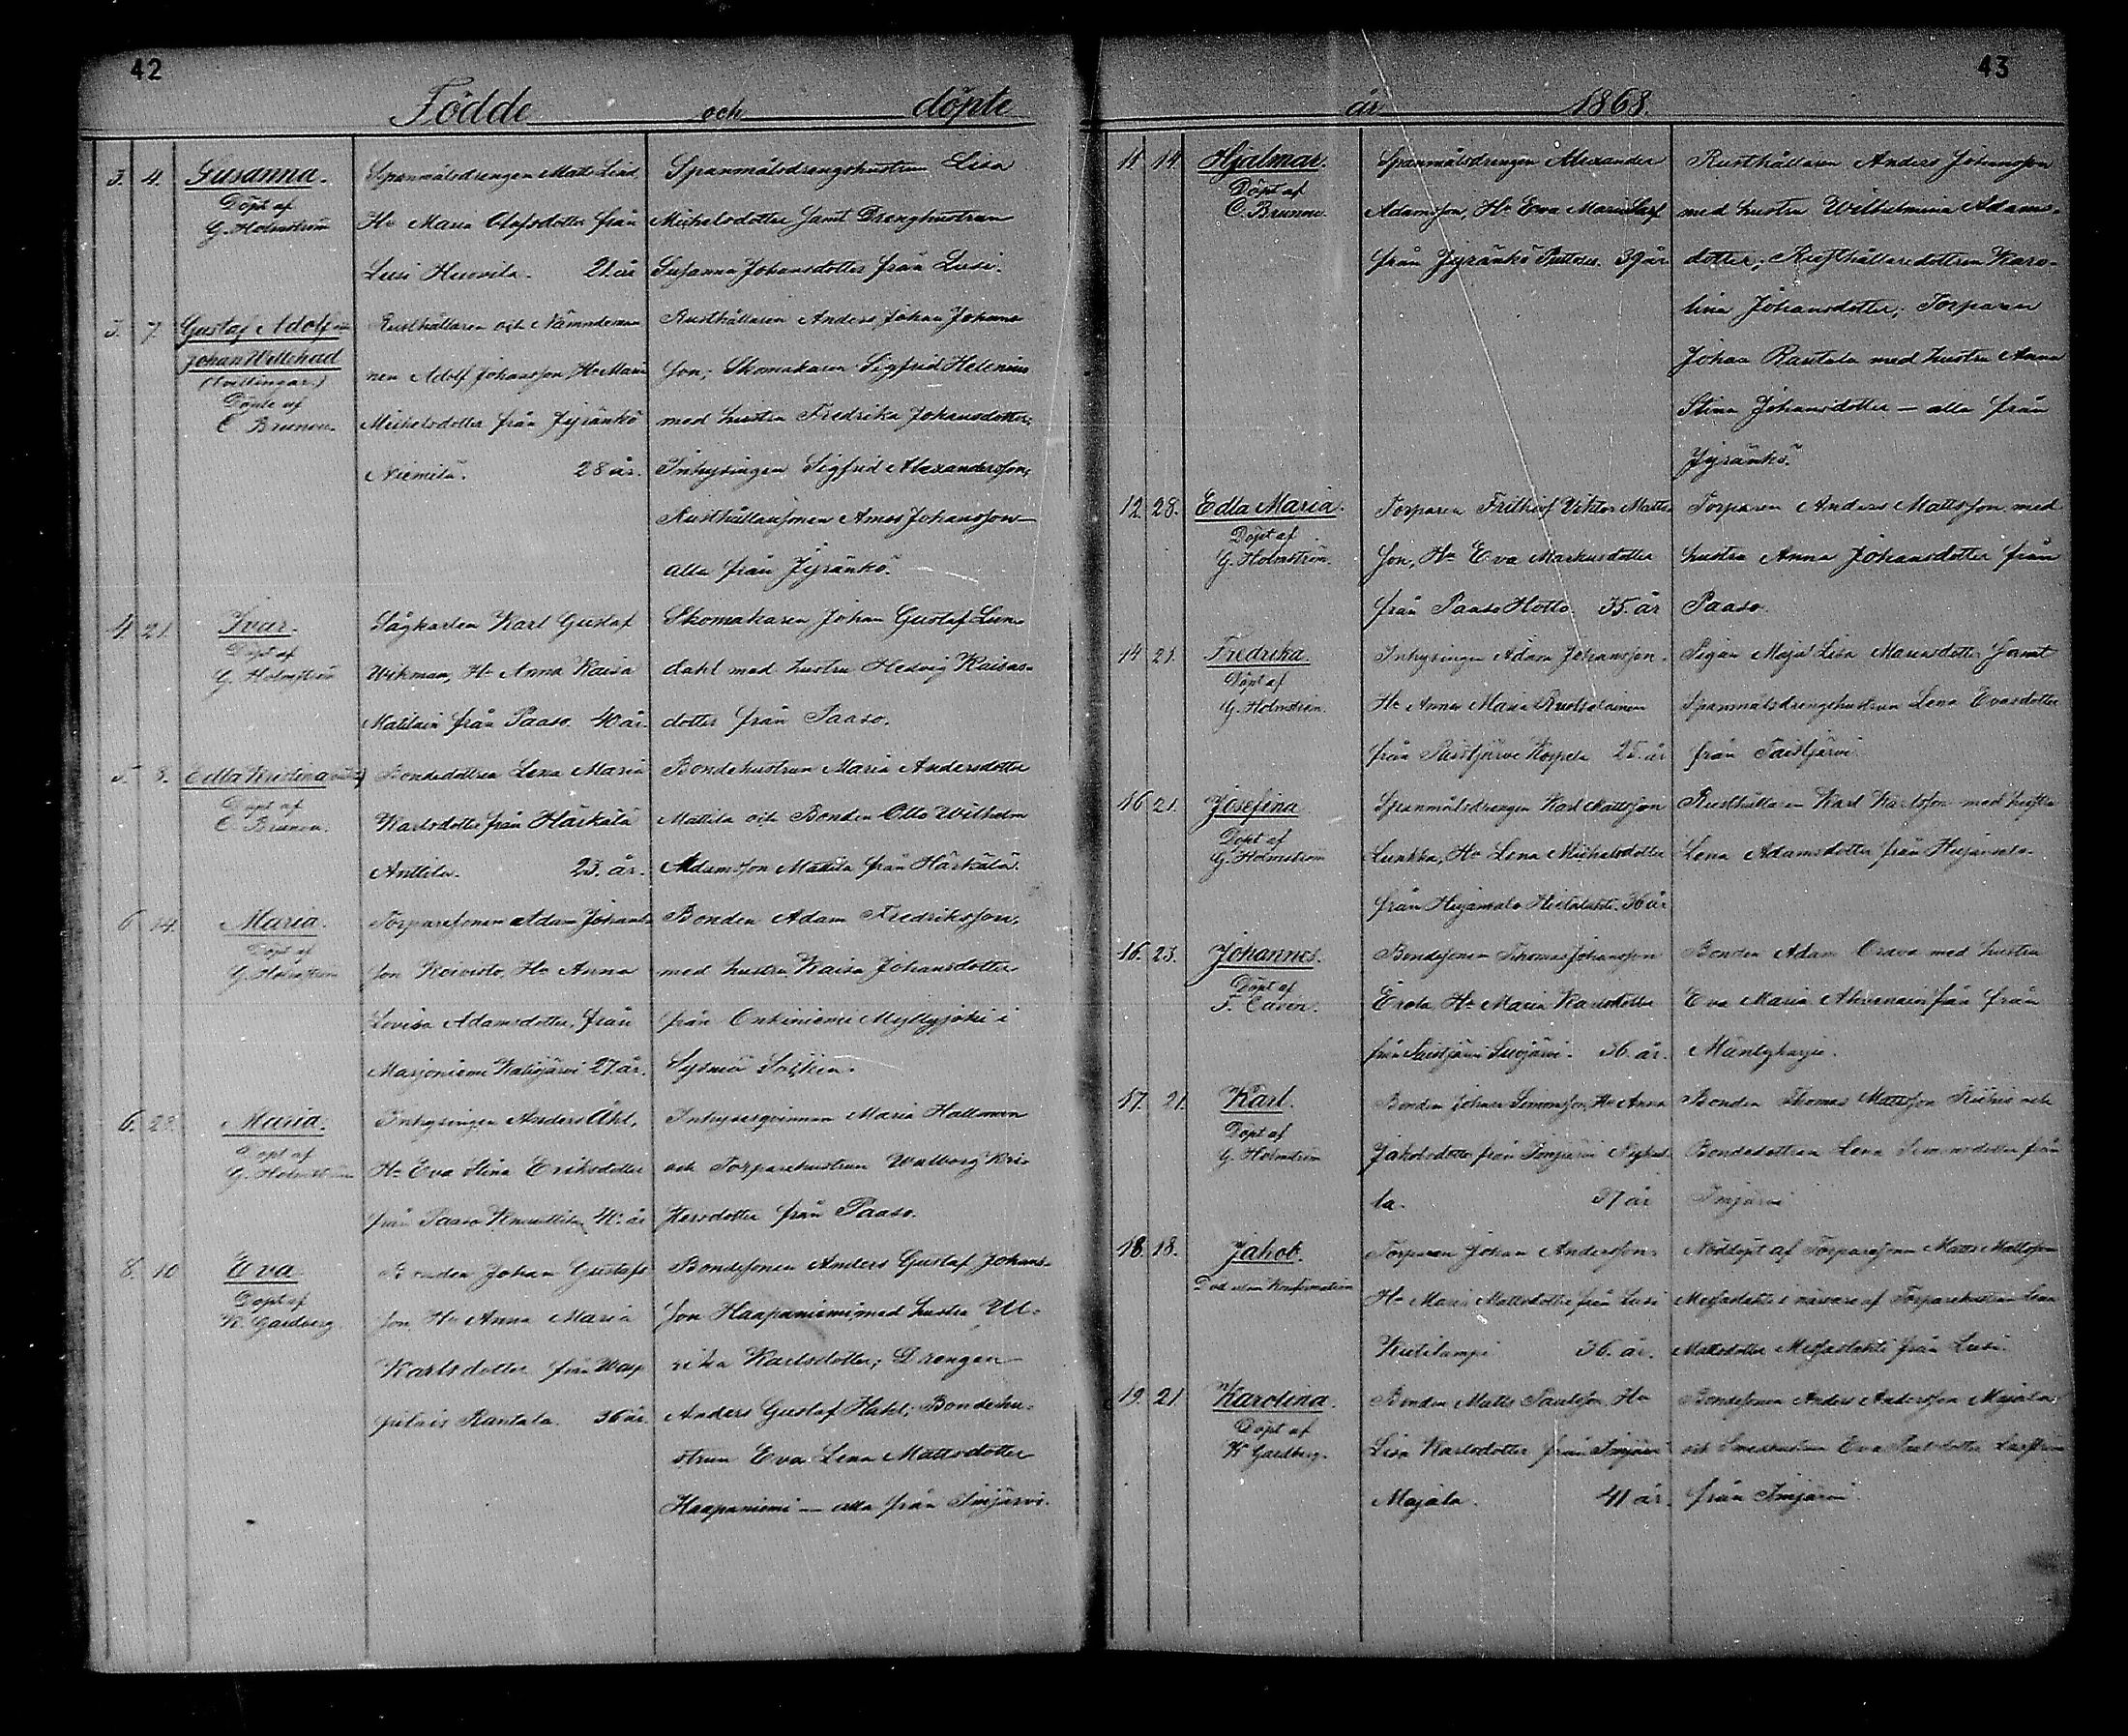 42
Födde och döpte
3. 4. Susanna.
Döpt af
G. Holmström
Spanmålsdrengen Matts Lind
Hu Maria Olofsdotter från
Lusi Huovila. 21 år
Spanmålsdrengshustrun Lisa
Michelsdotter samt Drenghustrun
Susanna Johansdotter från Lusi.
3. 7. Gustaf Adolf
Johan Willehad
(tvillingar)
Döpte af
C. Brunou.
Rusthållaren och Nämndeman
nen Adolf Johansson, Hu Maria
Michelsdotter från Jyränkö
Niemilä. 28 år.
Rusthållaren Anders Johan Johans
son; Skomakaren Sigfrid Helenius
med hustru Fredrika Johansdotter;
Inhysingen Sigfrid Alexandersson;
Rusthållaresonen Amos Johansson
alla från Jyränkö.
4 21. Ivar.
Döpt af
G. Holmström
Sågkarlen Karl Gustaf
Wikman, Hu Anna Kaisa
från Paaso. 40 år.
Skomakaren Johan Gustaf Lun-
dahl med hustru Hedvig Kaisas-
dotter från Paaso.
5. 8. Edla Kristina
Döpt af
C. Brunou.
Bondedottren Lena Maria
Karlsdotter från Härkälä
Anttila. 23. år.
Bondehustrun Maria Andersdotter
Mattila och Bonden Otto Wilhelm
Adamsson Mattila från Härkälä.
6 14. Maria.
Döpt af
G. Holmström
Torparesonen Adam Johans
son Koivisto, Hu Anna
Lovisa Adamsdotter, från
Marjoniemi 27. år.
Bonden Adam Fredriksson,
med hustru Kaisa Johansdotter
från Onkiniemi Myllyjoki i
Sysmä Socken.
6. 23. Maria.
Döpt af
G. Holmström
Inhysingen Anders Åhl,
Hu Eva Stina Eriksdotter
från Paaso 40. år
Inhysesqvinnan Maria Hallonen
och Torparehustrun Walborg Kris
tersdotter från Paaso.
8. 10 Eva.
Döpt af
K. Gardberg.
Bonden Johan Gustafs
son, Hu Anna Maria
Karlsdotter från
Rantala. 36 år.
Bondesonen Anders Gustaf Johans-
son Haapaniemi, med hustru Ul-
rika Karlsdotter; Drengen
Anders Gustaf Hahl; Bondehu-
strun Eva Lena Mattsdotter
Haapaniemi – alla från Imjärvi.
43
år 1868.
11. 14 Hjalmar.
Döpt af
C. Brunou.
Spanmålsdrengen Alexander
Adamsson, Hu Eva Maria
från Jyränkö 39 år
Rusthållaren Anders Johansson
med hustru Wilhelmina Adams-
dotter; Rusthållaredottren Karo-
lina Johansdotter; Torparen
Johan Rantala med hustru Anna
Stina Johansdotter – alla från
Jyränkö.
12. 28. Edla Maria.
Döpt af
G. Holmström.
Torparen Frithiof Viktor Matts
son, Hu Eva Markusdotter
från Paaso Hotto. 35. år
Torparen Anders Mattsson med
hustru Anna Johansdotter från
Paaso.
14 21. Fredrika.
Döpt af
G. Holmström.
Inhysingen Adam Johansson.
Hu Anna Maria
från 25. år
Pigan Maja Lisa Mariasdotter samt
Spanmålsdrengshustrun Lena Evasdotter
från Taistjärvi.
16 21. Josefina
Döpt af
G. Holmström
Spanmålsdrengen Karl Mattsson
Lunkka, Hu Lena Michelsdotter
från 36 år
Rusthållaren Karl Karlsson med hustru
Lena Adamsdotter från
16. 23. Johannes.
Döpt af
F. Caven.
Bondesonen Thomas Johansson
Erola, Hu Maria Karlsdotter
från 36. år.
Bonden Adam Orava med hustru
Eva Maria från från
Mäntyharju.
17. 21. Karl.
Döpt af
G. Holmström
Bonden Johan Simonsson, Hu Anna
Jakobsdotter från Imjärvi
la. 37 år
Bonden Thomas Mattsson och
Bondedottren Lena Simonsdotter från
Imjärvi
18. 18. Jakob.
Död utan Konfirmation
Torparen Johan Andersson,
Hu Maria Mattsdotter från Lusi
36. år.
Nöddöpt af Torparesonen Matts Mattsson
i närvaro af Torparehustrun Lena
Mattsdotter från Lusi.
19. 21. Karolina.
Döpt af
K Gardberg.
Bonden Matts Paulsson, Hu
Lisa Karlsdotter från Imjärvi
Majala. 41 år.
Bondesonen Anders Andersson Majala
och Smedhustrun Eva
från Imjärvi.